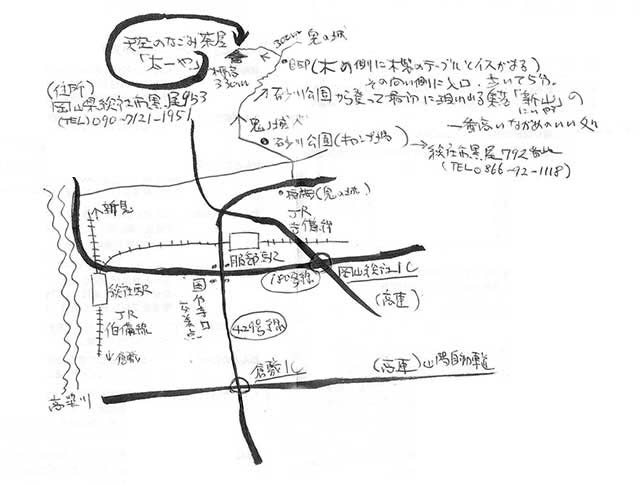 天空のなごみ茶屋
「太一や」
標高
330m
300m
鬼の城
(住所)
岡山県総社市黒尾953
(TEL) 090-7121-1951
その向い側に入口、歩いて5分。
砂川公園から登って最初に
「新山」の
にいやま
一番高いながめのいい処
鬼ノ城へ
砂川公園(キャンプ場)
→総社市黒尾792番地
(TEL 0866-92-1118)
新見
(鬼の城)
JR
吉備線
服部駅
180号線
岡山総社IC
(高速)
総社駅
JR
伯備線
倉敷
国分寺口
交差点
429号線
倉敷IC
(高速)山陽自動車道
高梁川